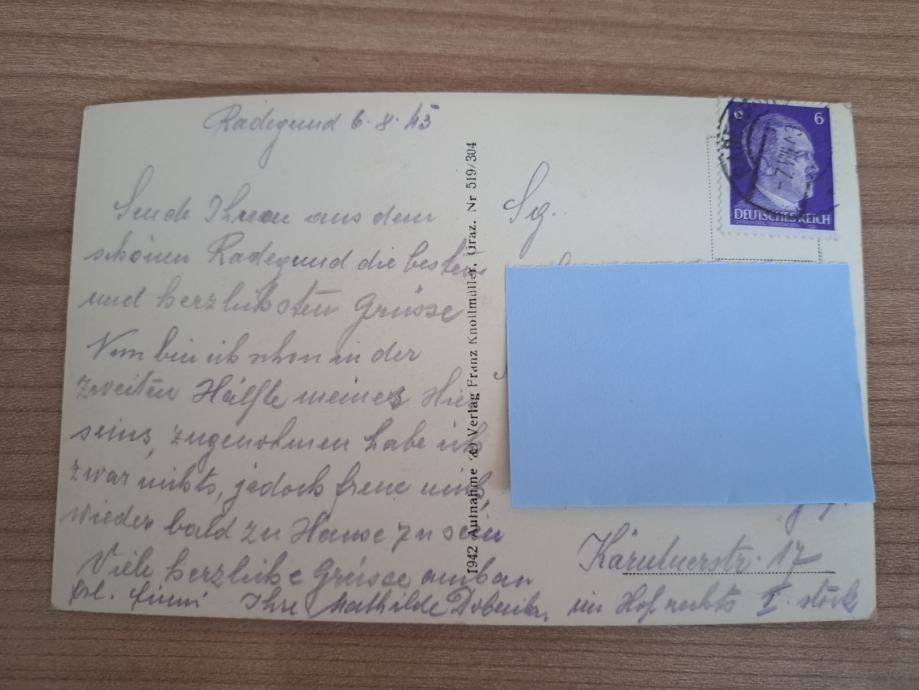 Radegund 6.8.43
Sende Ihnen aus dem
schönen Radegund die besten
und herzlichsten Grüsse
Nun bin ich schon in der
zweiten Hälfte meines Hier
seins, zugenohmen habe ich
zwar nichts, jedoch freue mich,
wieder bald zu Hause zu sein
Viele herzliche Grüsse an
Frl. Ihre Mathilde
1942 Aufnahme u. Verlag Franz Knollmüller, Graz. Nr 519/304
6 6
DEUTSCHES REICH
Sg.
Kärntnerstr. 17
im Hof rechts I. stock